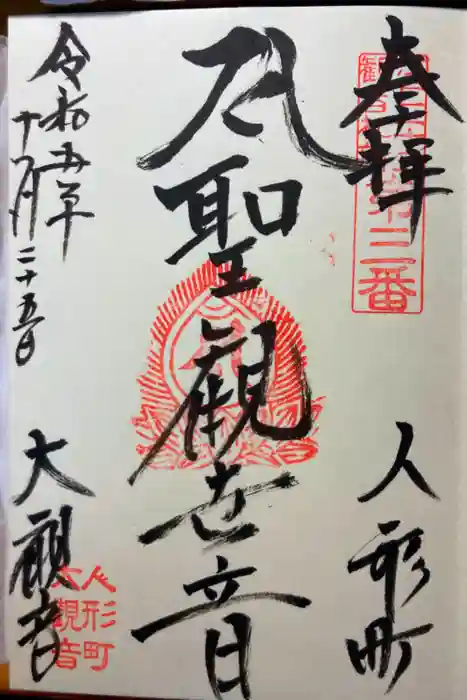 奉拝
人形町
聖観世音
令和五年
十月二十五日
大観音
第三番
人形町
大観音